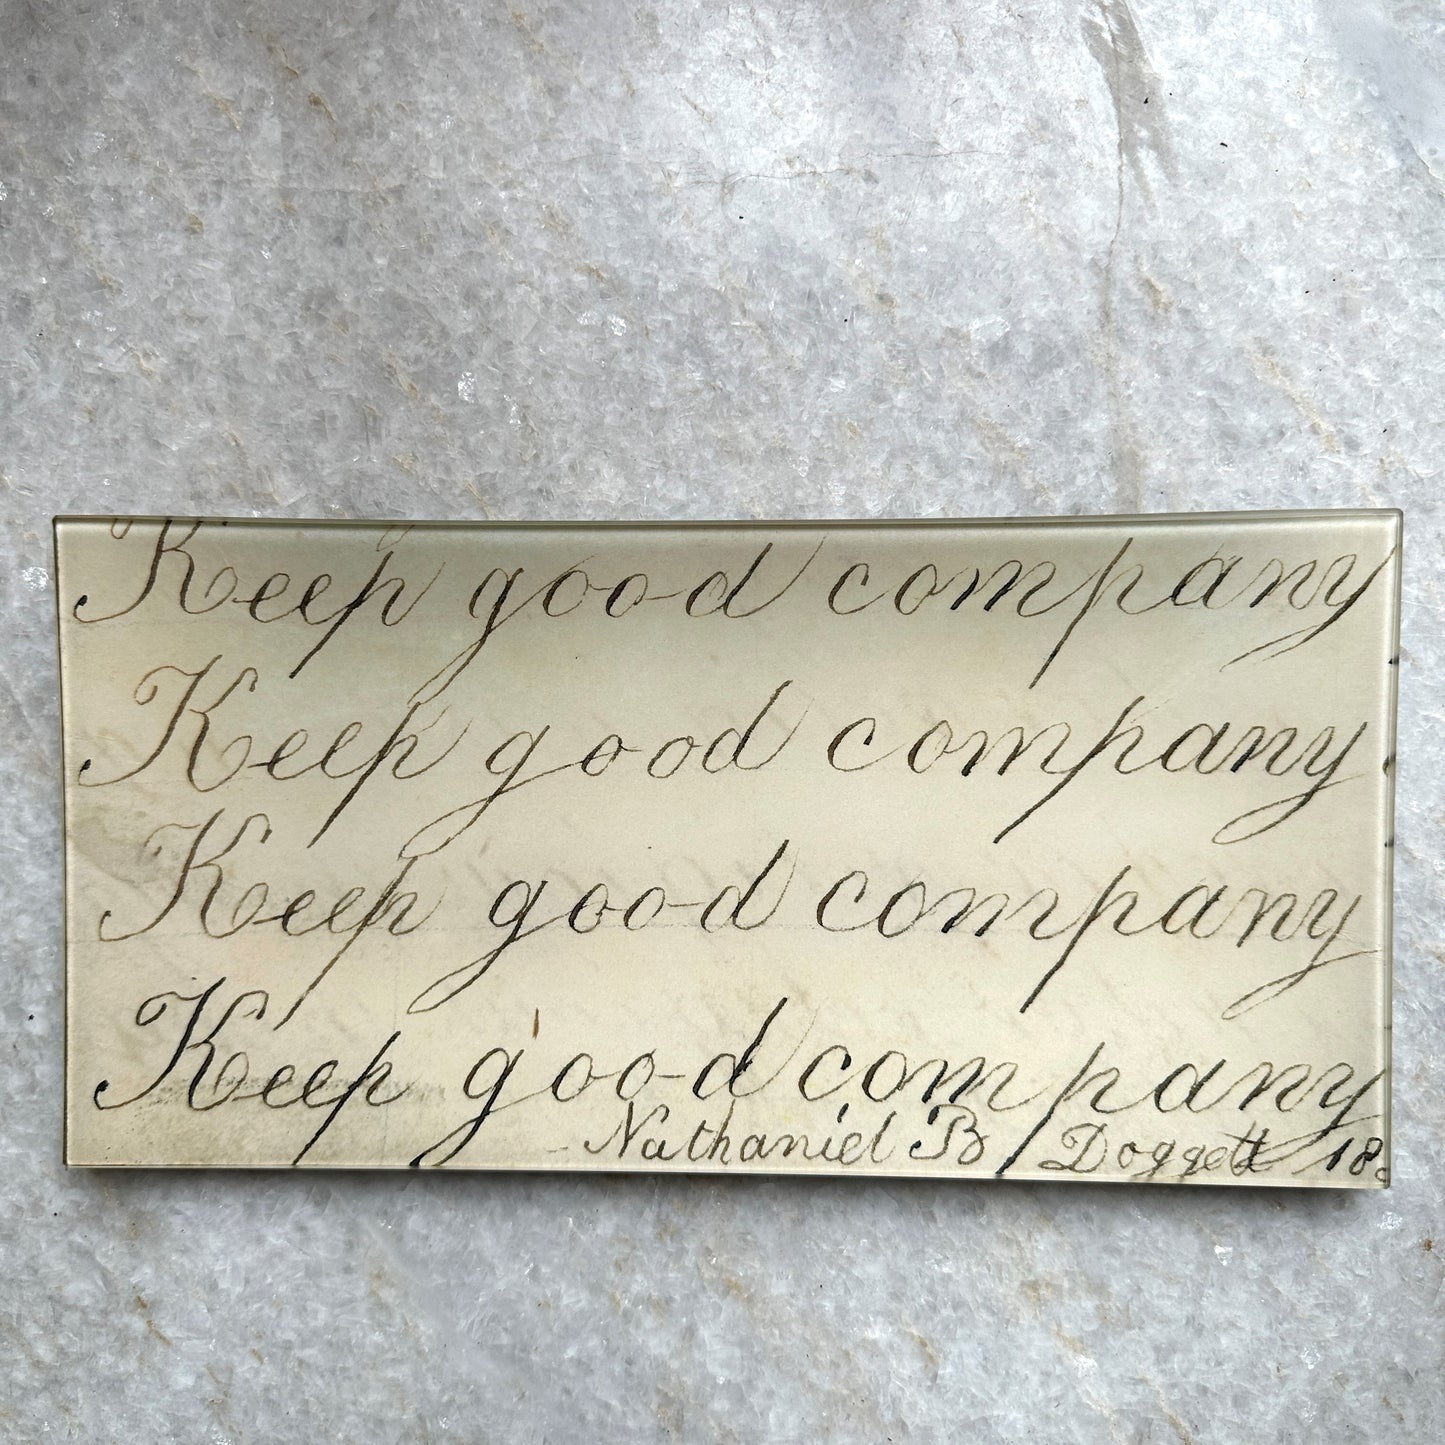 Keep good company
Keep good company
Keep good company
Keep good company
Nathaniel B Doggett 18